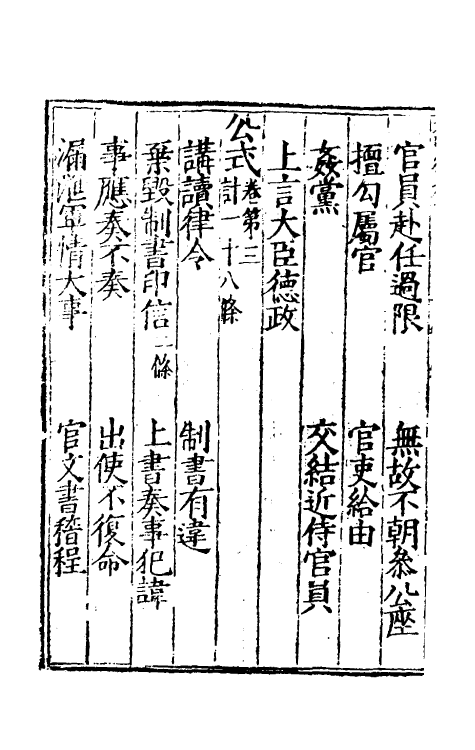 官員赴任過限　無故不朝參公座
擅勾屬官　官吏給由
姦黨　交結近侍官員
上言大臣德政
公式卷第三計一十八條
講讀律令　制書有違
棄毀制書印信二條　上書奏事犯諱
事應奏不奏　出使不復命
漏泄軍情大事　官文書稽程